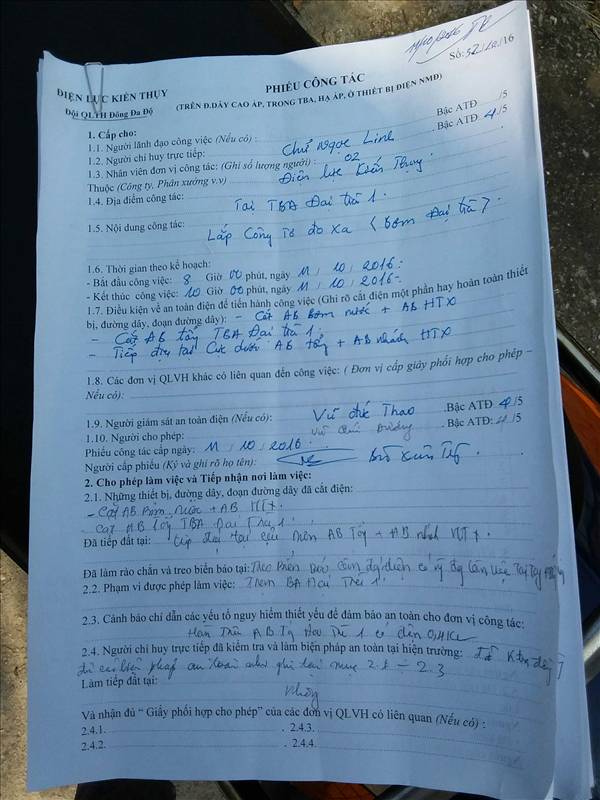 11/10/2016
Số: 52/10/16
ĐIỆN LỰC KIẾN THỤY
PHIẾU CÔNG TÁC
Đội QLTH Đông Đa Độ
(TRÊN Đ.DÂY CAO ÁP, TRONG TBA, HẠ ÁP, Ở THIẾT BỊ ĐIỆN NMĐ)
1. Cấp cho:
1.1. Người lãnh đạo công việc (Nếu có) : Bậc ATĐ /5
1.2. Người chỉ huy trực tiếp: Chử Ngọc Linh Bậc ATĐ: 4/5
1.3. Nhân viên đơn vị công tác: (Ghi số lượng người) : 02
Thuộc (Công ty, Phân xưởng v.v) Điện lực Kiến Thụy.
1.4. Địa điểm công tác: Tại TBA Đại trà 1.
1.5. Nội dung công tác: Lắp Công Tơ đo xa (Bơm Đại trà).
1.6. Thời gian theo kế hoạch:
- Bắt đầu công việc: 8 Giờ 00 phút, ngày 11, 10, 2016.
- Kết thúc công việc: 10 Giờ 00 phút, ngày 11, 10, 2016.
1.7. Điều kiện về an toàn điện để tiến hành công việc (Ghi rõ cắt điện một phần hay hoàn toàn thiết
bị, đường dây, đoạn đường dây): - Cắt AB Bơm nước + AB HTX
- Cắt AB tổng TBA Đại trà 1
- Tiếp địa tại cực dưới AB tổng + AB nhánh HTX
1.8. Các đơn vị QLVH khác có liên quan đến công việc: ( Đơn vị cấp giấy phối hợp cho phép –
Nếu có):
1.9. Người giám sát an toàn điện (Nếu có): Vũ đức Thao .Bậc ATĐ 4/5
1.10. Người cho phép: Vũ Dương .Bậc ATĐ: 4/5
Phiếu công tác cấp ngày: 11, 10, 2016.
Người cấp phiếu (Ký và ghi rõ họ tên): Xuân
2. Cho phép làm việc và Tiếp nhận nơi làm việc:
2.1. Những thiết bị, đường dây, đoạn đường dây đã cắt điện:
- Cắt AB Bơm nước + AB HTX.
Cắt AB tổng TBA Đại Trà 1
Đã tiếp đất tại: tiếp địa tại cực AB Tổng + AB nhánh HTX.
Đã làm rào chắn và treo biển báo tại:
2.2. Phạm vi được phép làm việc: Trạm BA Đại Trà 1.
2.3. Cảnh báo chỉ dẫn các yếu tố nguy hiểm thiết yếu để đảm bảo an toàn cho đơn vị công tác:
AB có điện 0,4KV
2.4. Người chỉ huy trực tiếp đã kiểm tra và làm biện pháp an toàn tại hiện trường: đã
biện pháp an toàn như ghi tại mục 2.1 – 2.3
Làm tiếp đất tại: Không
Và nhận đủ “ Giấy phối hợp cho phép” của các đơn vị QLVH có liên quan (Nếu có) :
2.4.1. . 2.4.3.
2.4.2. . 2.4.4.